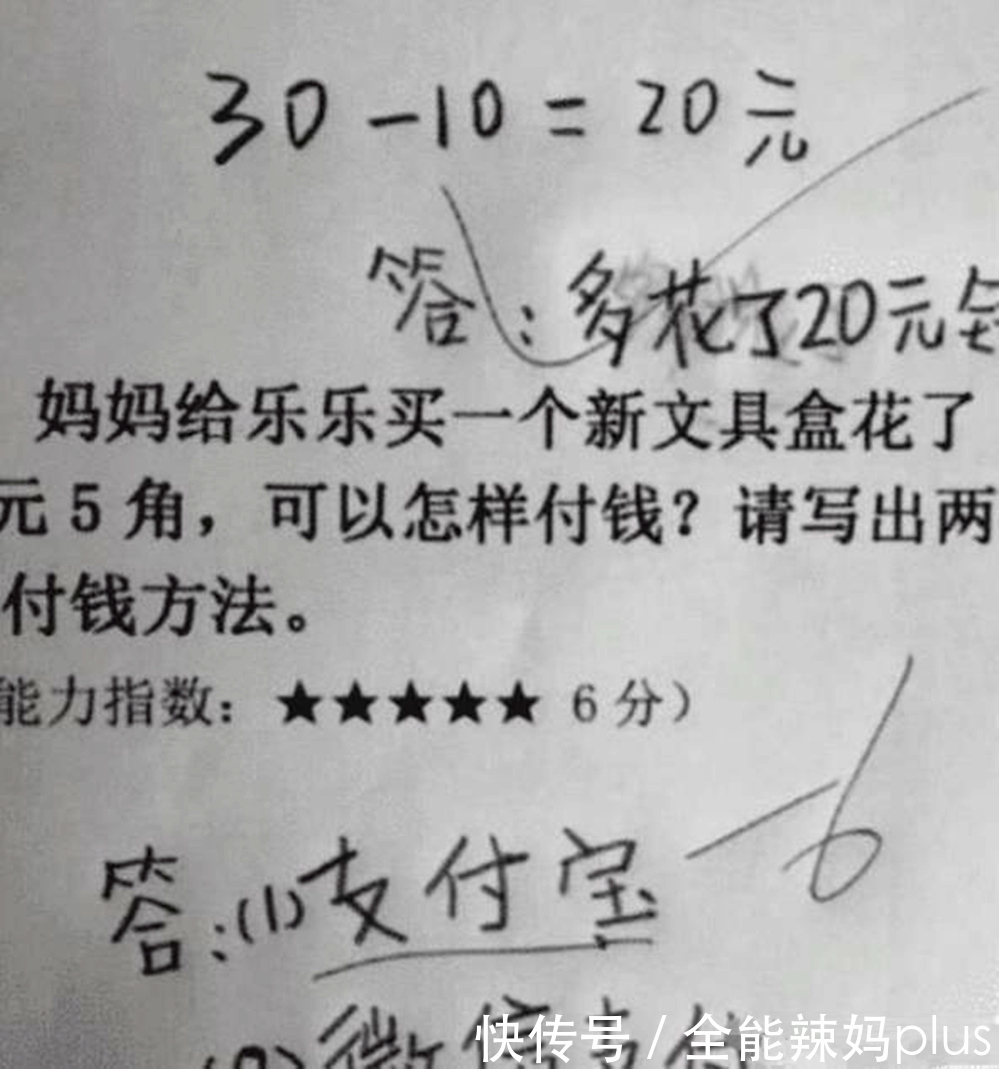 30-10=20元
答:多花了20元
妈妈给乐乐买一个新文具盒花了
元5角，可以怎样付钱？请写出两
付钱方法。
能力指数：★★★★★ 6分）
-6
答:(1)支付宝
(2)微信支付
快传号/全能辣妈plus